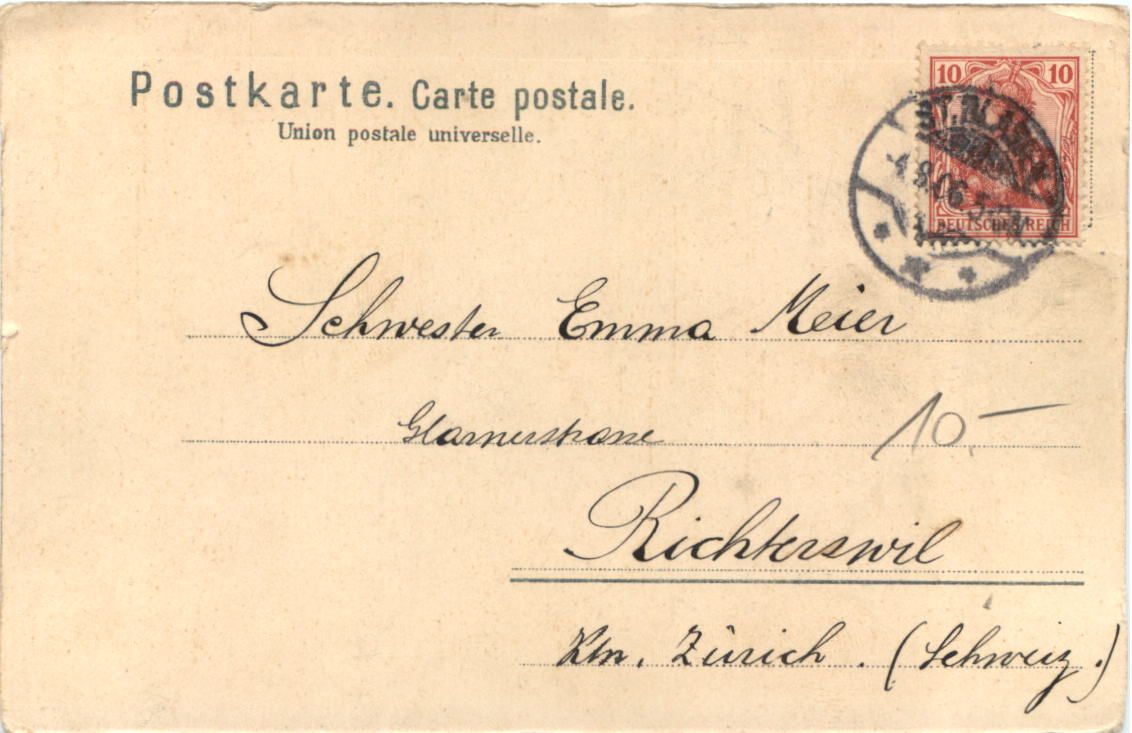 Postkarte. Carte postale.
Union postale universelle.
10 10
DEUTSCHES REICH
ST. BLASIEN
4.9.06 5-6N
Schwester Emma Meier
Glarnerstrasse
10.-
Richterswil
Ktn. Zürich. (Schweiz.)